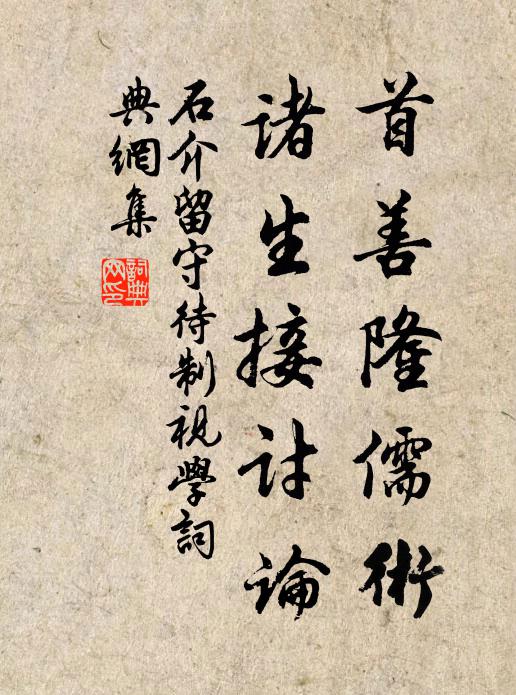 首善隆儒術
諸生接討論
石介留守待制視學詞
典網集
詞典網印